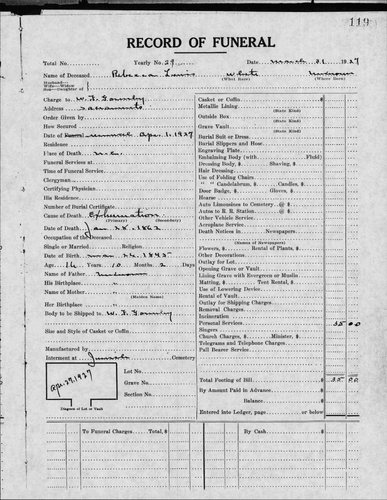 119
RECORD OF FUNERAL
Total No. Yearly No. 29 Date March 31 1937
Name of Deceased Rebecca Lewis White Unknown
(What Race) (Where Born)
Husband—
Wife—Widow
Son—Daughter of
Charge to W. F. Gormley
Address Sacramento
Order Given by
How Secured
Date of Funeral removal Apr. 1, 1937
Residence
Place of Death
Funeral Services at
Time of Funeral Service
Clergyman
Certifying Physician
His Residence
Number of Burial Certificate
Cause of Death Exhumation
(Primary) (Secondary)
Date of Death Jan 28, 1862
Occupation of the Deceased
Single or Married Religion
Date of Birth 1845
Age 16 Years 10 Months 2 Days
Name of Father Unknown
His Birthplace "
Name of Mother "
(Maiden Name)
Her Birthplace "
Body to be Shipped to W. F. Gormley
Size and Style of Casket or Coffin
Manufactured by
Interment at Cemetery
Apr. 29, 1937
Lot No.
Grave No.
Section No.
Diagram of Lot or Vault
Casket or Coffin $
Metallic Lining
(State Kind)
Outside Box
(State Kind)
Grave Vault
(State Kind)
Burial Suit or Dress
Burial Slippers and Hose
Engraving Plate
Embalming Body (with Fluid)
Dressing Body, $ Shaving, $
Hair Dressing
Use of Folding Chairs
" " Candelabrum, $ Candles, $
Door Badge, $ Gloves, $
Hearse
Auto Limousines to Cemetery @ $
Autos to R. R. Station @ $
Other Vehicle Service
Aeroplane Service
Death Notices in Newspapers
(Names of Newspapers)
Flowers, $ Rental of Plants, $
Other Decorations
Outlay for Lot
Opening Grave or Vault
Lining Grave with Evergreen or Muslin
Matting, $ Tent Rental, $
Use of Lowering Device
Rental of Vault
Outlay for Shipping Charges
Removal Charges
Incineration
Personal Services 35 00
Singers
Church Charges, $ Minister, $
Telegrams and Telephone Charges
Pall Bearer Service
Total Footing of Bill $ 35 00
By Amount Paid in Advance
Balance $
Entered into Ledger, page or below
To Funeral Charges Total, $
By Cash $